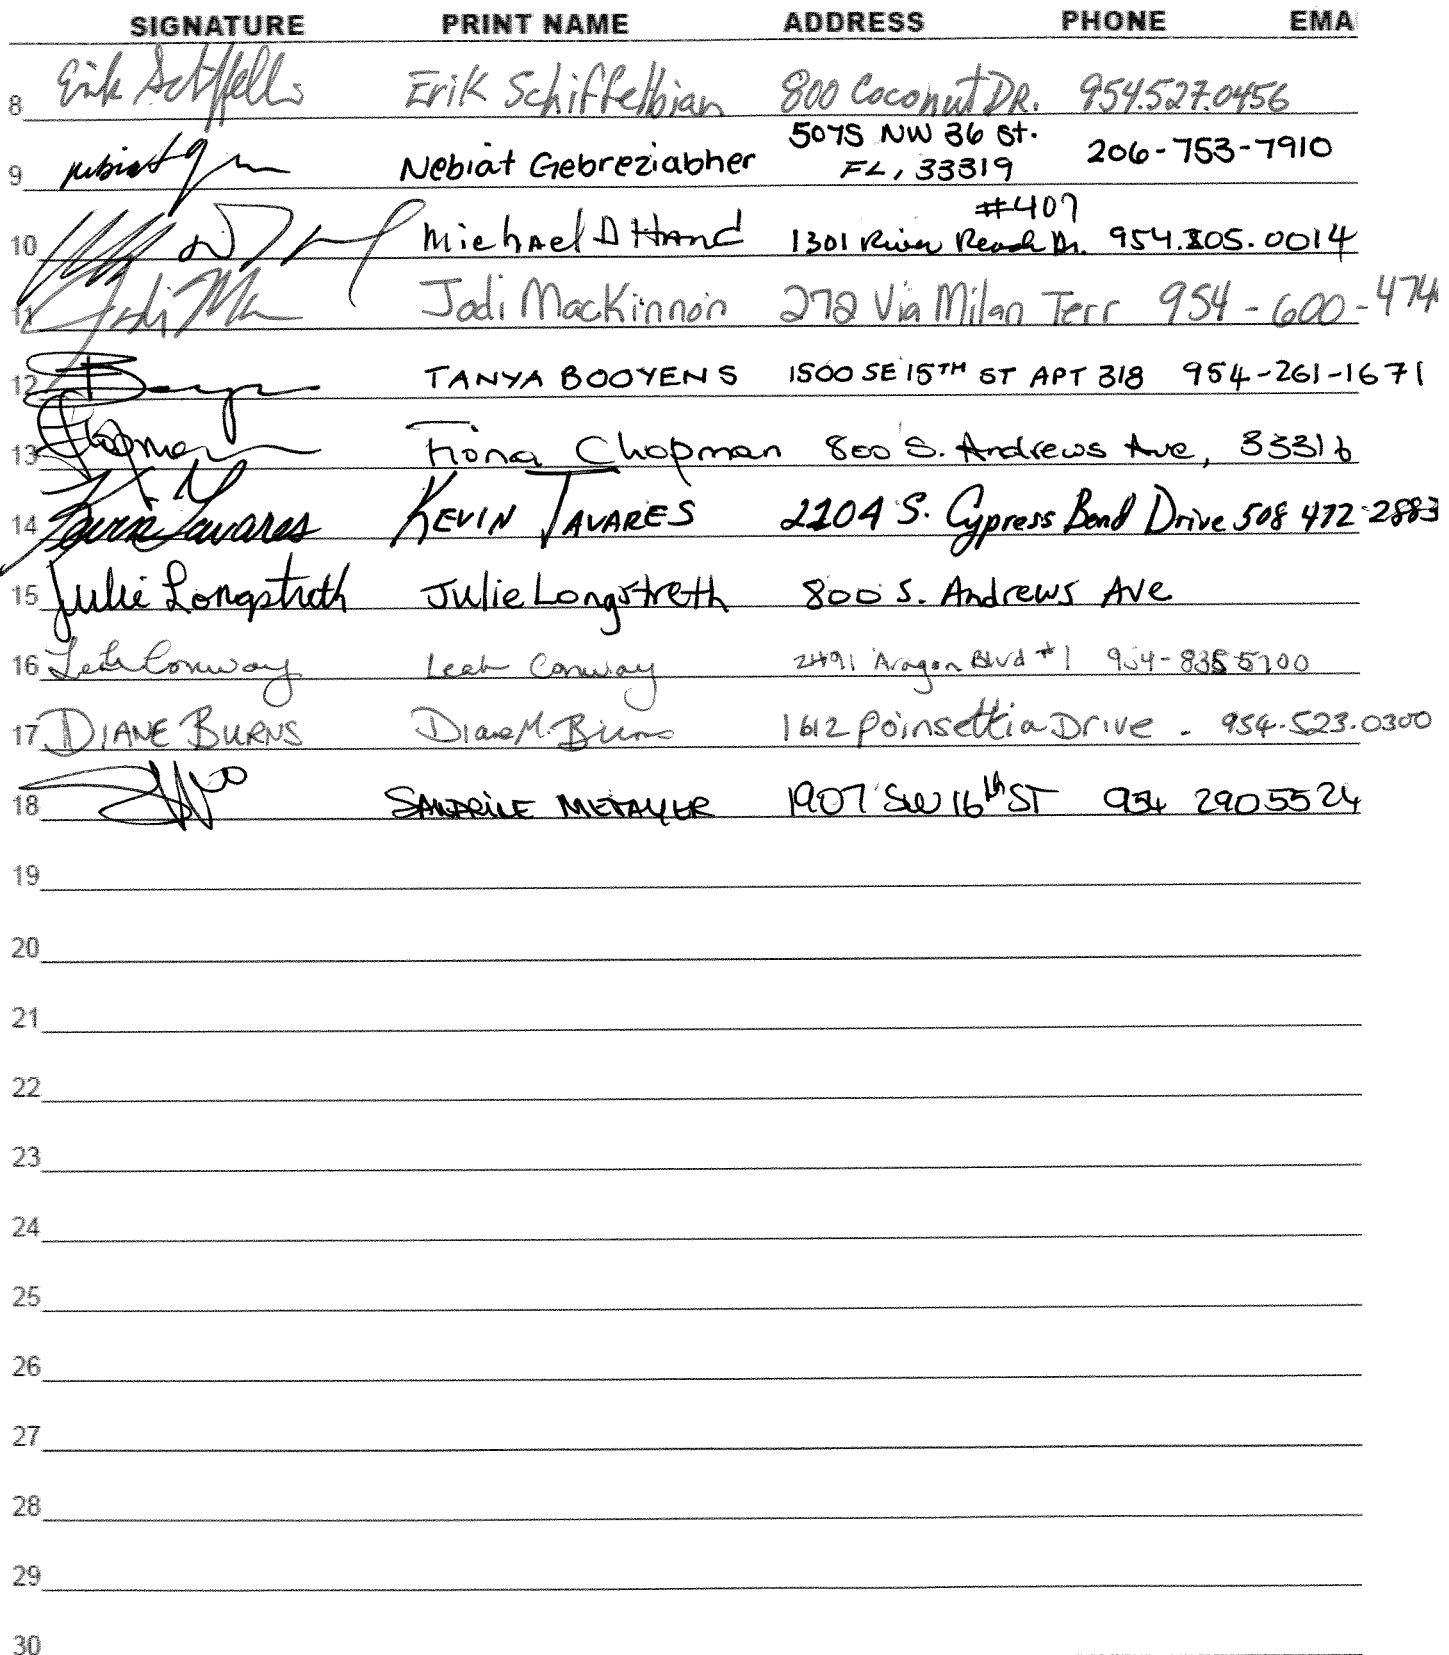 SIGNATURE PRINT NAME ADDRESS PHONE EMA
8 Erik Schiffelbian 800 Coconut DR. 954.527.0456
9 Nebiat Gebreziabher 5075 NW 36 St. FL, 33319 206-753-7910
#407
10 Michael D Hand 1301 River Reach Dr. 954.205.0014
11 Jodi Ma Jodi MacKinnon 272 Via Milan Terr 954-600-474
12 TANYA BOOYENS 1500 SE 15TH ST APT 318 954-261-1671
13 Chapman Fiona Chapman 800 S. Andrews Ave, 33316
14 Kevin Tavares KEVIN TAVARES 2104 S. Cypress Bend Drive 508 472-2883
15 Julie Longstreth Julie Longstreth 800 S. Andrews Ave
16 Leah Conway Leah Conway 2491 Aragon Blvd #1 954-835 5700
17 DIANE BURNS Diane M. Burns 1612 Poinsettia Drive. 954.523.0300
18 SANDRINE METAYER 1907 SW 16th ST 954 2905524
19
20
21
22
23
24
25
26
27
28
29
30